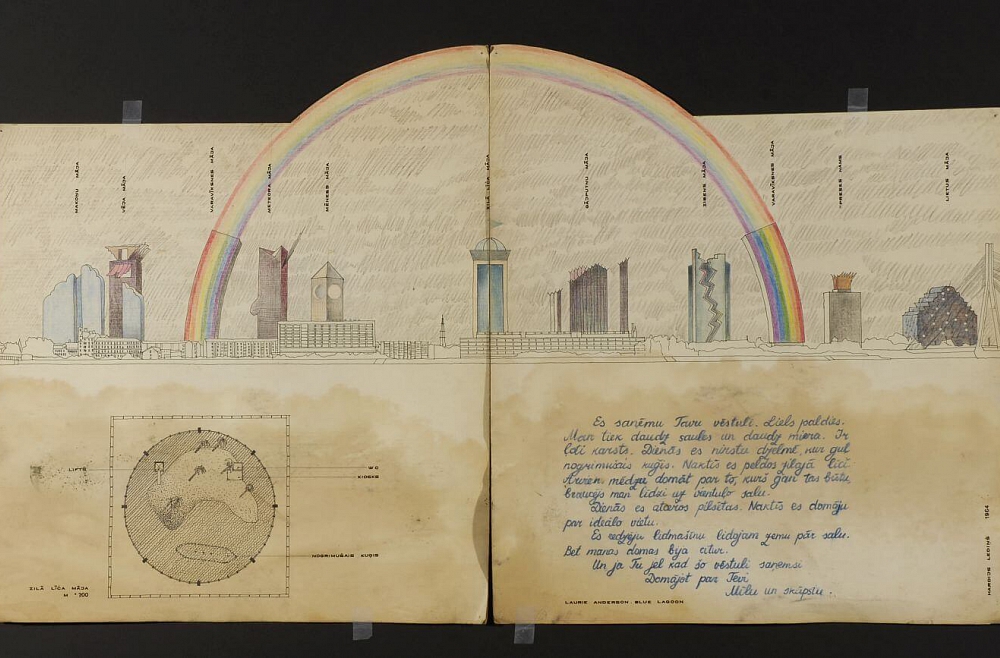 MĀKOŅU MĀJA
VĒJA MĀJA
VARAVĪKSNES MĀJA
METEORA MĀJA
MĒNESS MĀJA
ZILĀ LĪČA MĀJA
GĀJPUTNU MĀJA
ZIBENS MĀJA
VARAVĪKSNES MĀJA
PRESES NAMS
LIETUS MĀJA
LIFTS
WC
KIOSKS
NOGRIMUŠAIS KUĢIS
ZILĀ LĪČA MĀJA
M 1:200
Es saņēmu Tavu vēstuli. Liels paldies.
Man tiek daudz saules un daudz miera. Ir
ļoti karsts. Dienās es nirstu dzelmē, kur guļ
nogrimušais kuģis. Naktīs es peldos zilajā līcī.
Arvien mēdzu domāt par to, kurš gan tas būtu,
braucējs man līdzi uz vientuļo salu.
Dienās es atceros pilsētas. Naktīs es domāju
par ideālo vietu.
Es redzēju lidmašīnu lidojam zemu pār salu.
Bet manas domas bija citur.
Un ja Tu jel kad šo vēstuli saņemsi
Domājot par Tevi
Mīlu un skūpstu.
LAURIE ANDERSON. BLUE LAGOON
HARDIJS LEDIŅŠ 1984